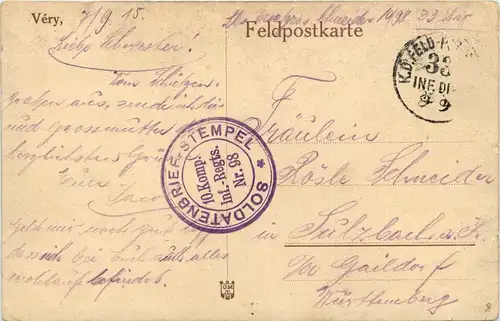 Véry, 7/9 15.
Feldpostkarte
Schneider 1/98 33
Liebe Schwester!
Vom Schützen-
graben aus, sende ich dir
und Grossmutter die
herzlichsten Grüsse
Euer
Jacob
Geht mir noch gut
bei Euch auch alles
wohlauf befindet.
K.D. FELD-POST
33
INF. DIV
9 9
SOLDATENBRIEF-STEMPEL *
10. Komp.
Inf.-Regts.
Nr. 98
Fräulein
Rösle Schneider
in Sulzbach a. K.
Gaildorf
Württemberg
8